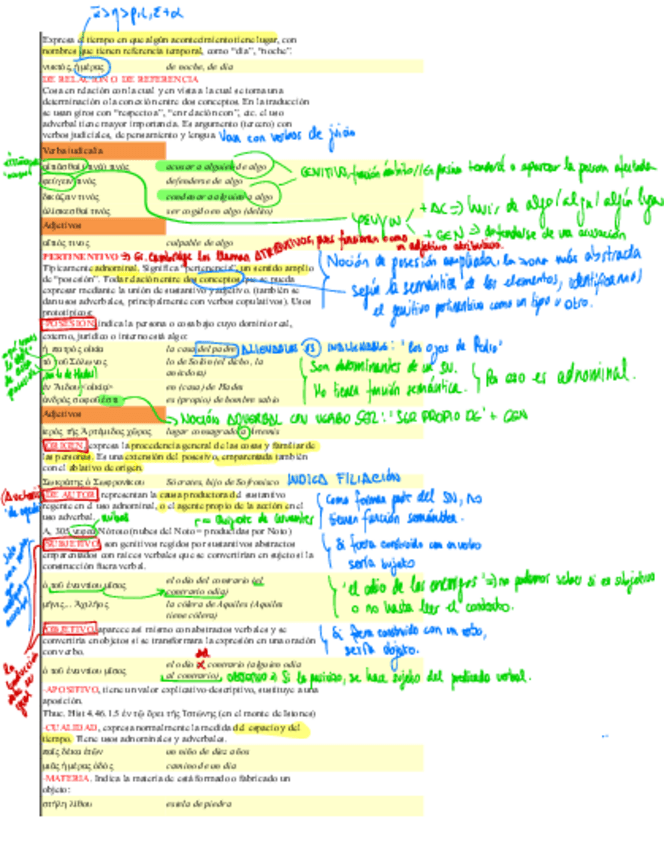 Expresa el tiempo en que algún acontecimiento tiene lugar, con
nombres que tienen referencia temporal, como "día", "noche".
νυκτός, ἡμέρας de noche, de día
DE RELACIÓN O DE REFERENCIA
Cosa en relación con la cual y en vista a la cual se toma una
determinación o la conexión entre dos conceptos. En la traducción
se usan giros con "respecto a", "en relación con", etc. el uso
adverbal tiene mayor importancia. Es argumento (tercero) con
verbos judiciales, de pensamiento y lengua Van con verbos de juicio
Verba iudicalia
τινά τινός acusar a alguien de algo
φεύγειν τινός defenderse de algo
τινός condenar a alguien a algo
ἁλίσκεσθαί τινος ser cogido en algo (delito)
φεύγειν
+ AC => huir de algo/algn/algún lugar
+ GEN => defenderse de una acusación
Adjetivos
αἴτιός τινος culpable de algo
PERTINENTIVO => Gr. Cambridge los llaman ATRIBUTIVOS, pues funcionan como
un adjetivo atributivo.
Típicamente adnominal. Significa "pertenencia", un sentido amplio
de "posesión". Toda relación entre dos conceptos que se pueda
expresar mediante la unión de sustantivo y adjetivo. (también se
dan usos adverbales, principalmente con verbos copulativos). Usos
prototípicos:
Noción de posesión ampliada, la zona más abstracta
según la semántica de los elementos, identificamos
el genitivo pertinentivo como un tipo u otro.
-POSESIÓN, indica la persona o cosa bajo cuyo dominio real,
externo, jurídico o interno está algo:
ἡ πατρὸς οἰκία la casa del padre
τὸ τοῦ Σόλωνος lo de Solón (el dicho, la
anécdota)
ἐν Ἅιδου en (casa) de Hades
ἀνδρὸς σοφοῦ ἐστι es (propio) de hombre sabio
ALIENABLES INALIENABLES: 'los ojos de Pedro'
Son determinantes de un SN.
No tienen función semántica.
Por eso es adnominal.
Adjetivos
NOCIÓN ADVERBAL CON VERBO SER: 'SER PROPIO DE' + GEN
ἱερὸς τῆς Ἀρτέμιδος χῶρος lugar consagrado a Ártemis
-ORIGEN, expresa la procedencia general de las cosas y familiar de
las personas. Es una extensión del posesivo, emparentada también
con el ablativo de origen.
Σωκράτης ὁ Σωφρονίσκου Sócrates, hijo de Sofronisco INDICA FILIACIÓN
-DE AUTOR, representan la causa productora del sustantivo
regente en el uso adnominal, o el agente propio de la acción en el
uso adverbal.
Quijote de Cervantes
Como forman parte del SN, no
tienen función semántica.
A. 305 Νότοιο (nubes del Noto = producidas por Noto)
-SUBJETIVO, son genitivos regidos por sustantivos abstractos
emparentados con raíces verbales que se convertirían en sujeto si la
construcción fuera verbal.
Si fuera construido con un verbo
sería sujeto
ὁ τοῦ ἐναντίου μῖσος el odio del contrario (el
contrario odia)
μῆνις... Ἀχιλῆος la cólera de Aquiles (Aquiles
tiene cólera)
'el odio de los enemigos' => no podemos saber si es subjetivo
o no hasta leer el contexto.
-OBJETIVO, aparece así mismo con abstractos verbales y se
convertiría en objetos si se transformara la expresión en una oración
con verbo.
Si fuera construido con un verbo,
sería objeto.
ὁ τοῦ ἐναντίου μῖσος el odio al contrario (alguien odia
al contrario)
-APOSITIVO, tiene un valor explicativo-descriptivo, sustituye a una
aposición.
Thuc. Hist 4.46.1.5 ἐν τῷ ὄρει τῆς Ἰστώνης (en el monte de Istones)
-CUALIDAD, expresa normalmente la medida del espacio y del
tiempo. Tiene usos adnominales y adverbales.
παῖς δέκα ἐτῶν un niño de diez años
μιᾶς ἡμέρας ὁδός camino de un día
-MATERIA. Indica la materia de está formado o fabricado un
objeto:
στήλη λίθου estela de piedra